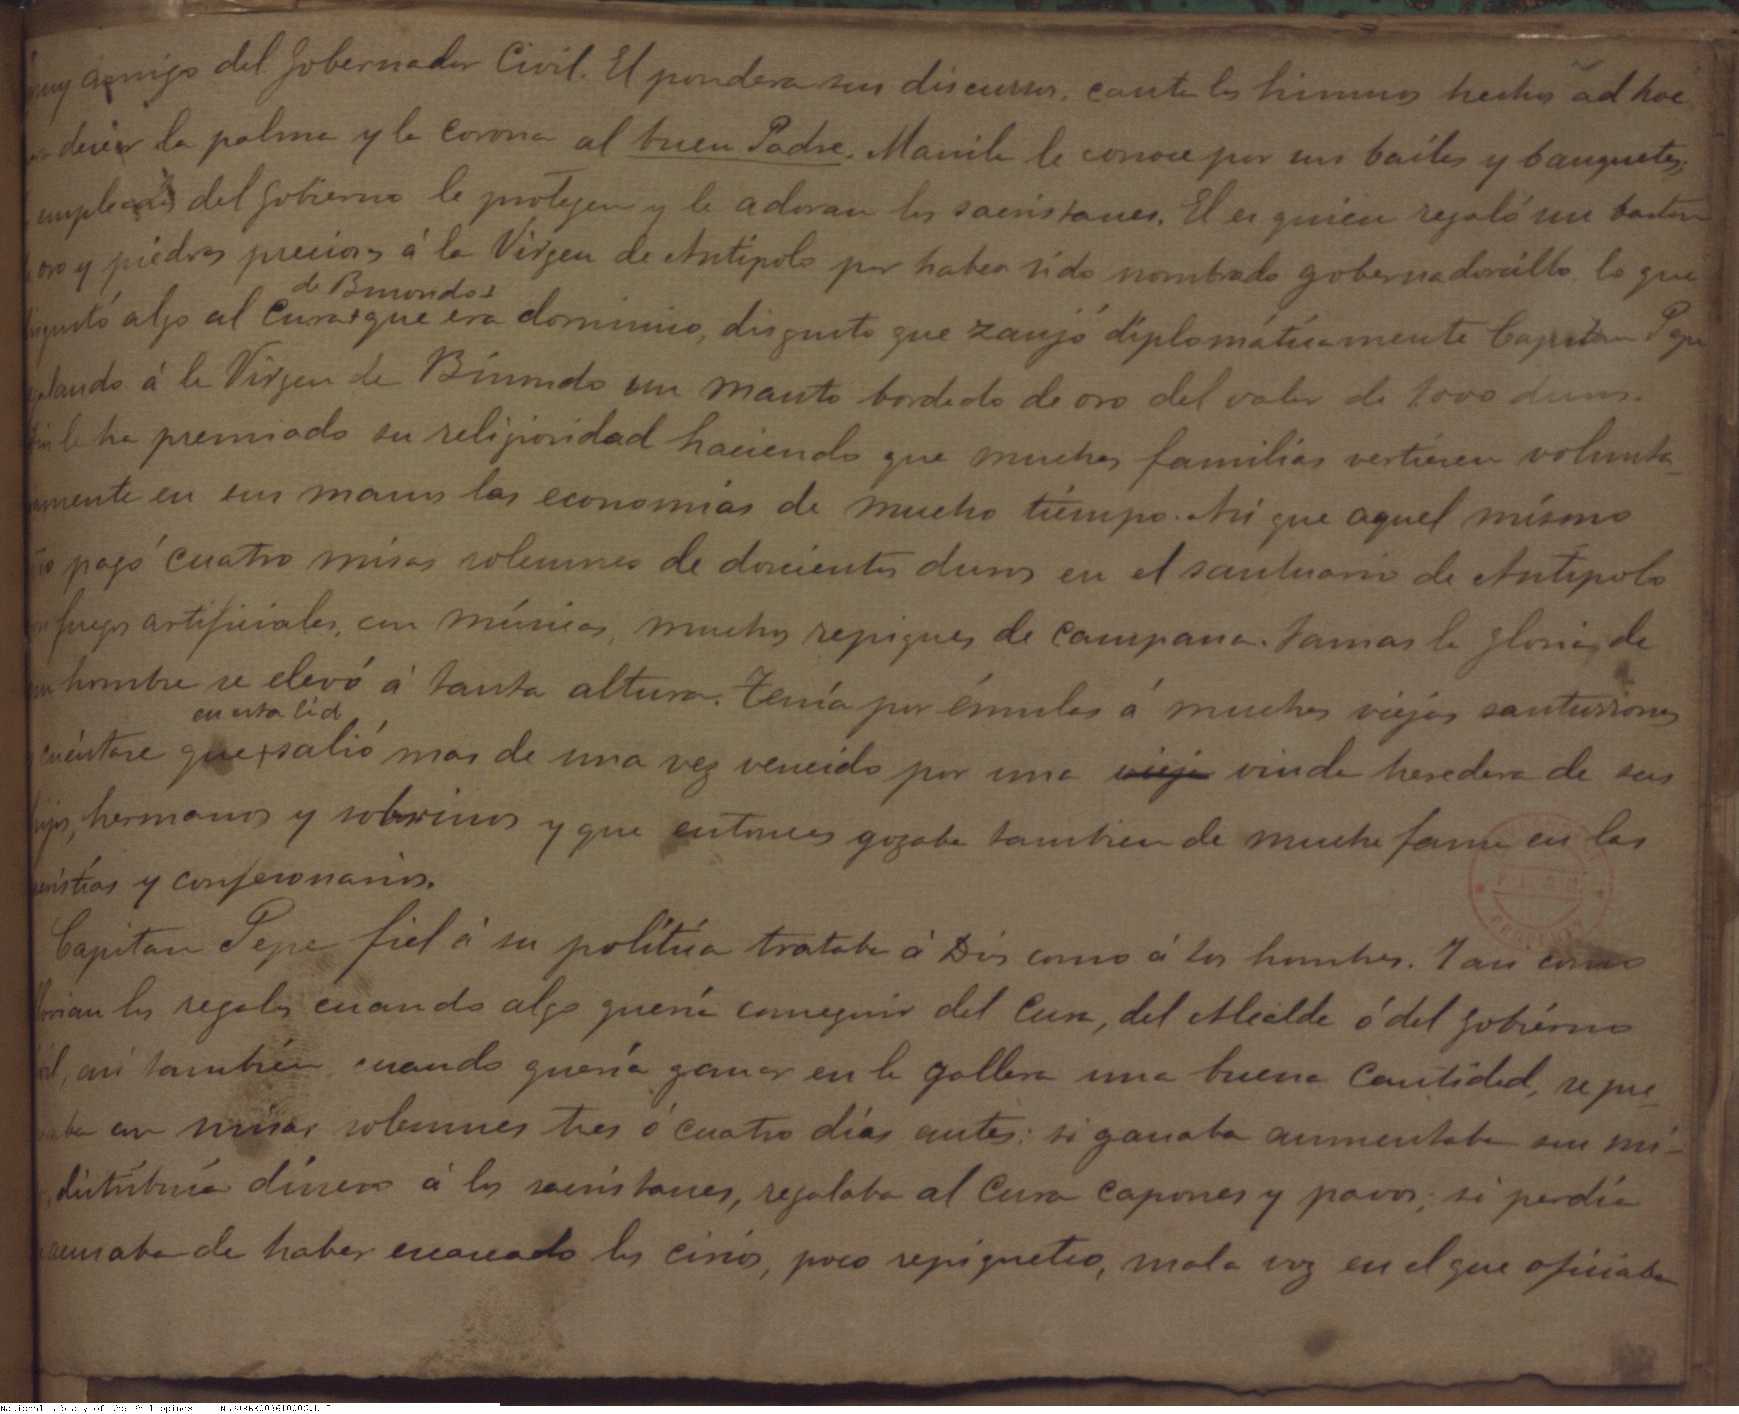 muy amigo del Gobernador Civil. El pondera sus discursos, canta los himnos hechos ad hoc
decir la palma y la corona al buen Padre. Manila le conoce por sus bailes y banquetes;
empleados del Gobierno le protegen y le adoran los sacristanes. El es quien regaló un baston
oro y piedras preciosas á la Virgen de Antipolo por haber sido nombrado gobernadorcillo, lo que
de Binondo
disgustó algo al Cura que era dominico, disgusto que zanjó diplomáticamente Capitan Pepe
regalando á la Virgen de Binondo un manto bordado de oro del valor de 1000 duros.
le ha premiado su religiosidad haciendo que muchas familias vertiesen volunta-
riamente en sus manos las economías de mucho tiempo. Así que aquel mismo
pagó cuatro misas solemnes de doscientos duros en el santuario de Antipolo
con fuegos artificiales, con músicas, muchos repiques de campana. Jamas la gloria de
un hombre se elevó á tanta altura. Tenía por émulas á muchas viejas santurronas
en esta lid
y cuéntase que salió mas de una vez vencido por una vieja viuda heredera de sus
hijos, hermanos y sobrinos y que entonces gozaba tambien de mucha fama en las
sacristías y confesonarios.
Capitan Pepe fiel á su política trataba á Dios como á los hombres. Tan como
llovian los regalos cuando algo quería conseguir del Cura, del Alcalde ó del Gobierno
Civil, así también cuando quería ganar en la gallera una buena cantidad, se pre-
paraba con misas solemnes tres ó cuatro días antes: si ganaba aumentaba sus mi-
sas, distribuía dinero á los sacristanes, regalaba al Cura capones y pavos; si perdía
acusaba de haber escaseado los cirios, poco repiqueteo, mala voz en el que oficiaba